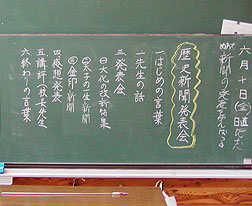 六月 日(金)日直
めあて新聞の発表
歴史新聞発表会
一はじめの言葉
二先生の話
三発表会
㊀大化の改新特集
㊁太子の一生新聞
㊂金印新聞
四感想発表
五講評(校長先生)
六終わりの言葉